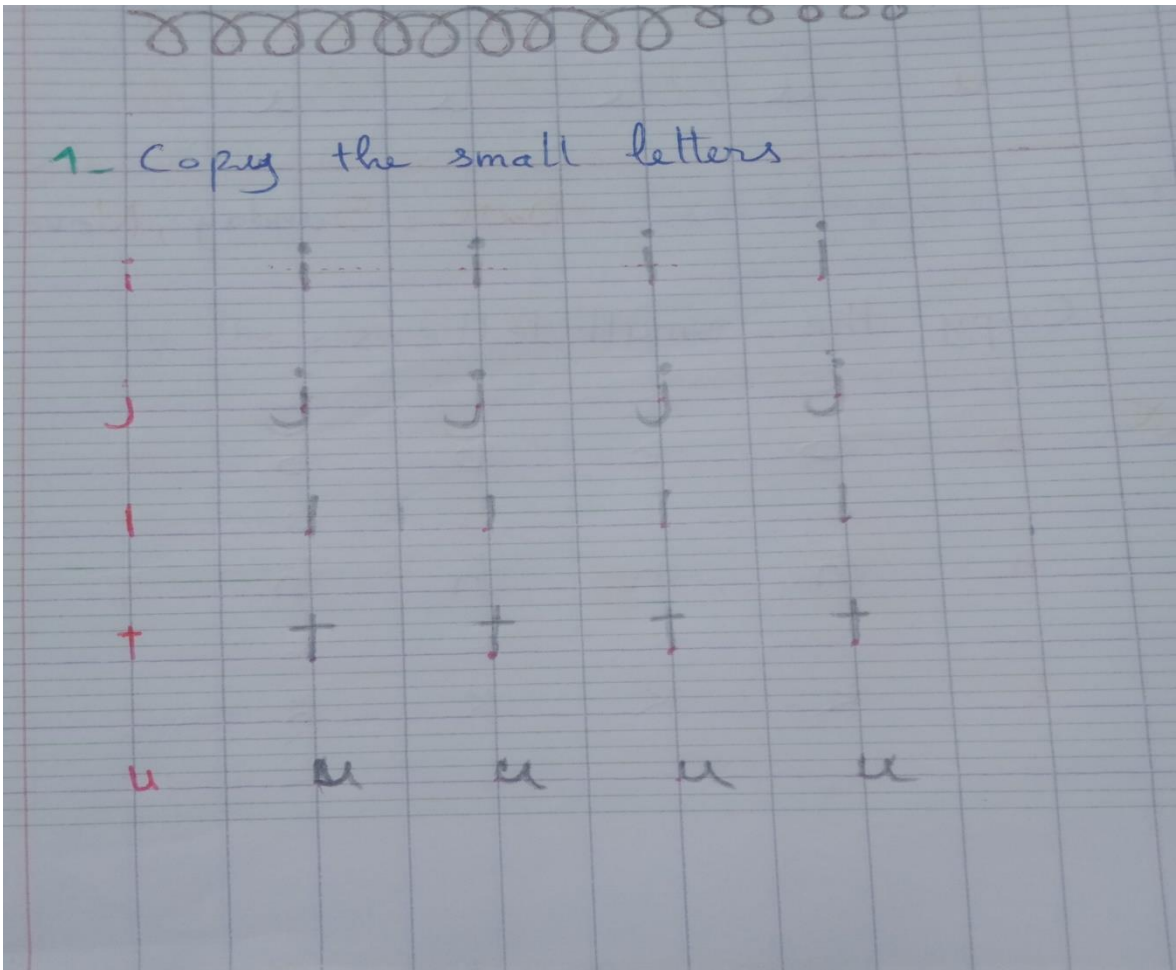 1- Copy the small letters
i i i i i
j j j j j
l l l l l
t t t t t
u u u u u